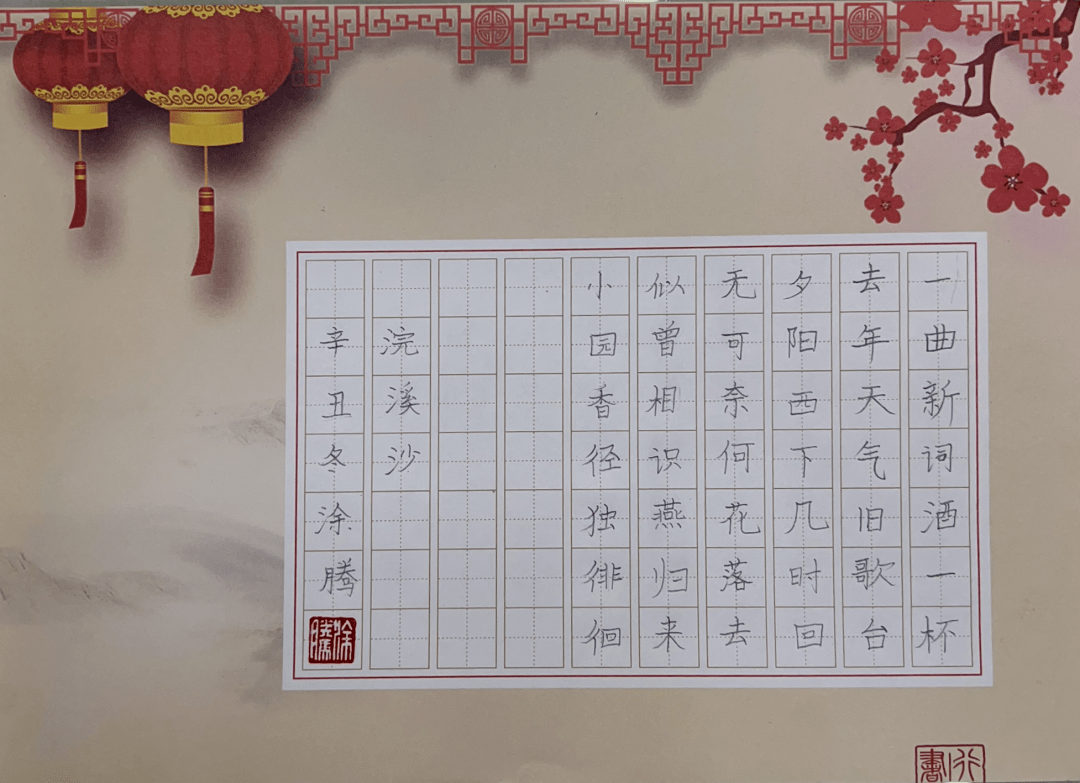 一曲新词酒一杯
去年天气旧歌台
夕阳西下几时回
无可奈何花落去
似曾相识燕归来
小园香径独徘徊
浣溪沙
辛丑冬涂腾
涂腾